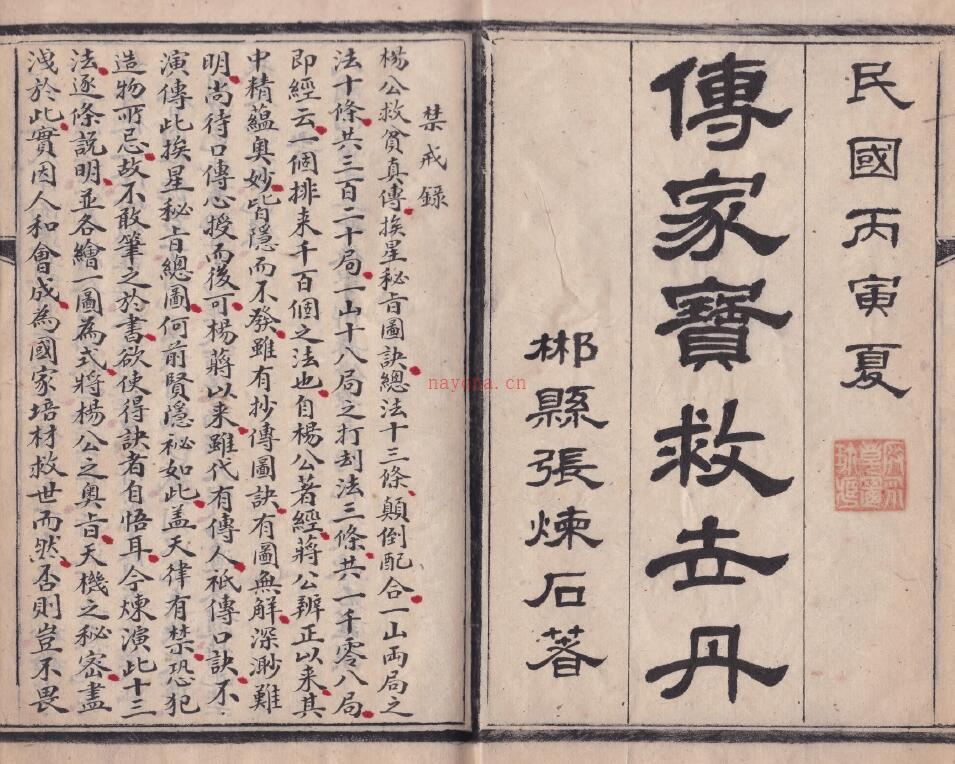 民國丙寅夏
傳家寶救世丹
郴縣張煉石著
禁戒錄
楊公救貧真傳挨星秘旨圖訣總法十三條顛倒配合一山兩局之
法十條共三百二十局一山十八局之打刼法三條共一千零八局
即經云一個排來千百個之法也自楊公著經蔣公辨正以來其
中精蘊奧妙皆隱而不發雖有抄傳圖訣有圖無解深渺難
明尚待口傳心授而後可楊蔣以来雖代有傳人祇傳口訣不
演傳此挨星秘旨總圖何前賢隱祕如此盖天律有禁恐犯
造物所忌故不敢筆之於書欲使得訣者自悟耳今煉演此十三
法逐條説明並各繪一圖為式將楊公之奧旨天機之秘密盡
洩於此實因人和會成為國家培材救世而然否則豈不畏
nayona.cn